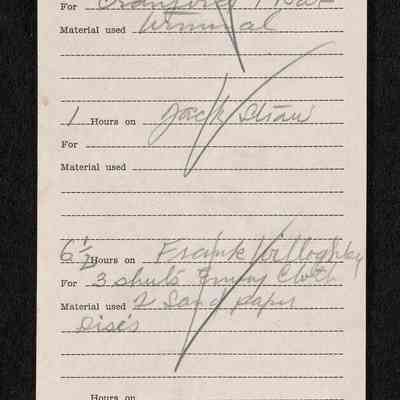 For Crawford
Material used
1 Hours on Jack Straw
For
Material used
6 1/2 Hours on Frank Willoghby
For 3 shuts Emmy Cloth
Material used 2 Sand paper
Disc's
Hours on